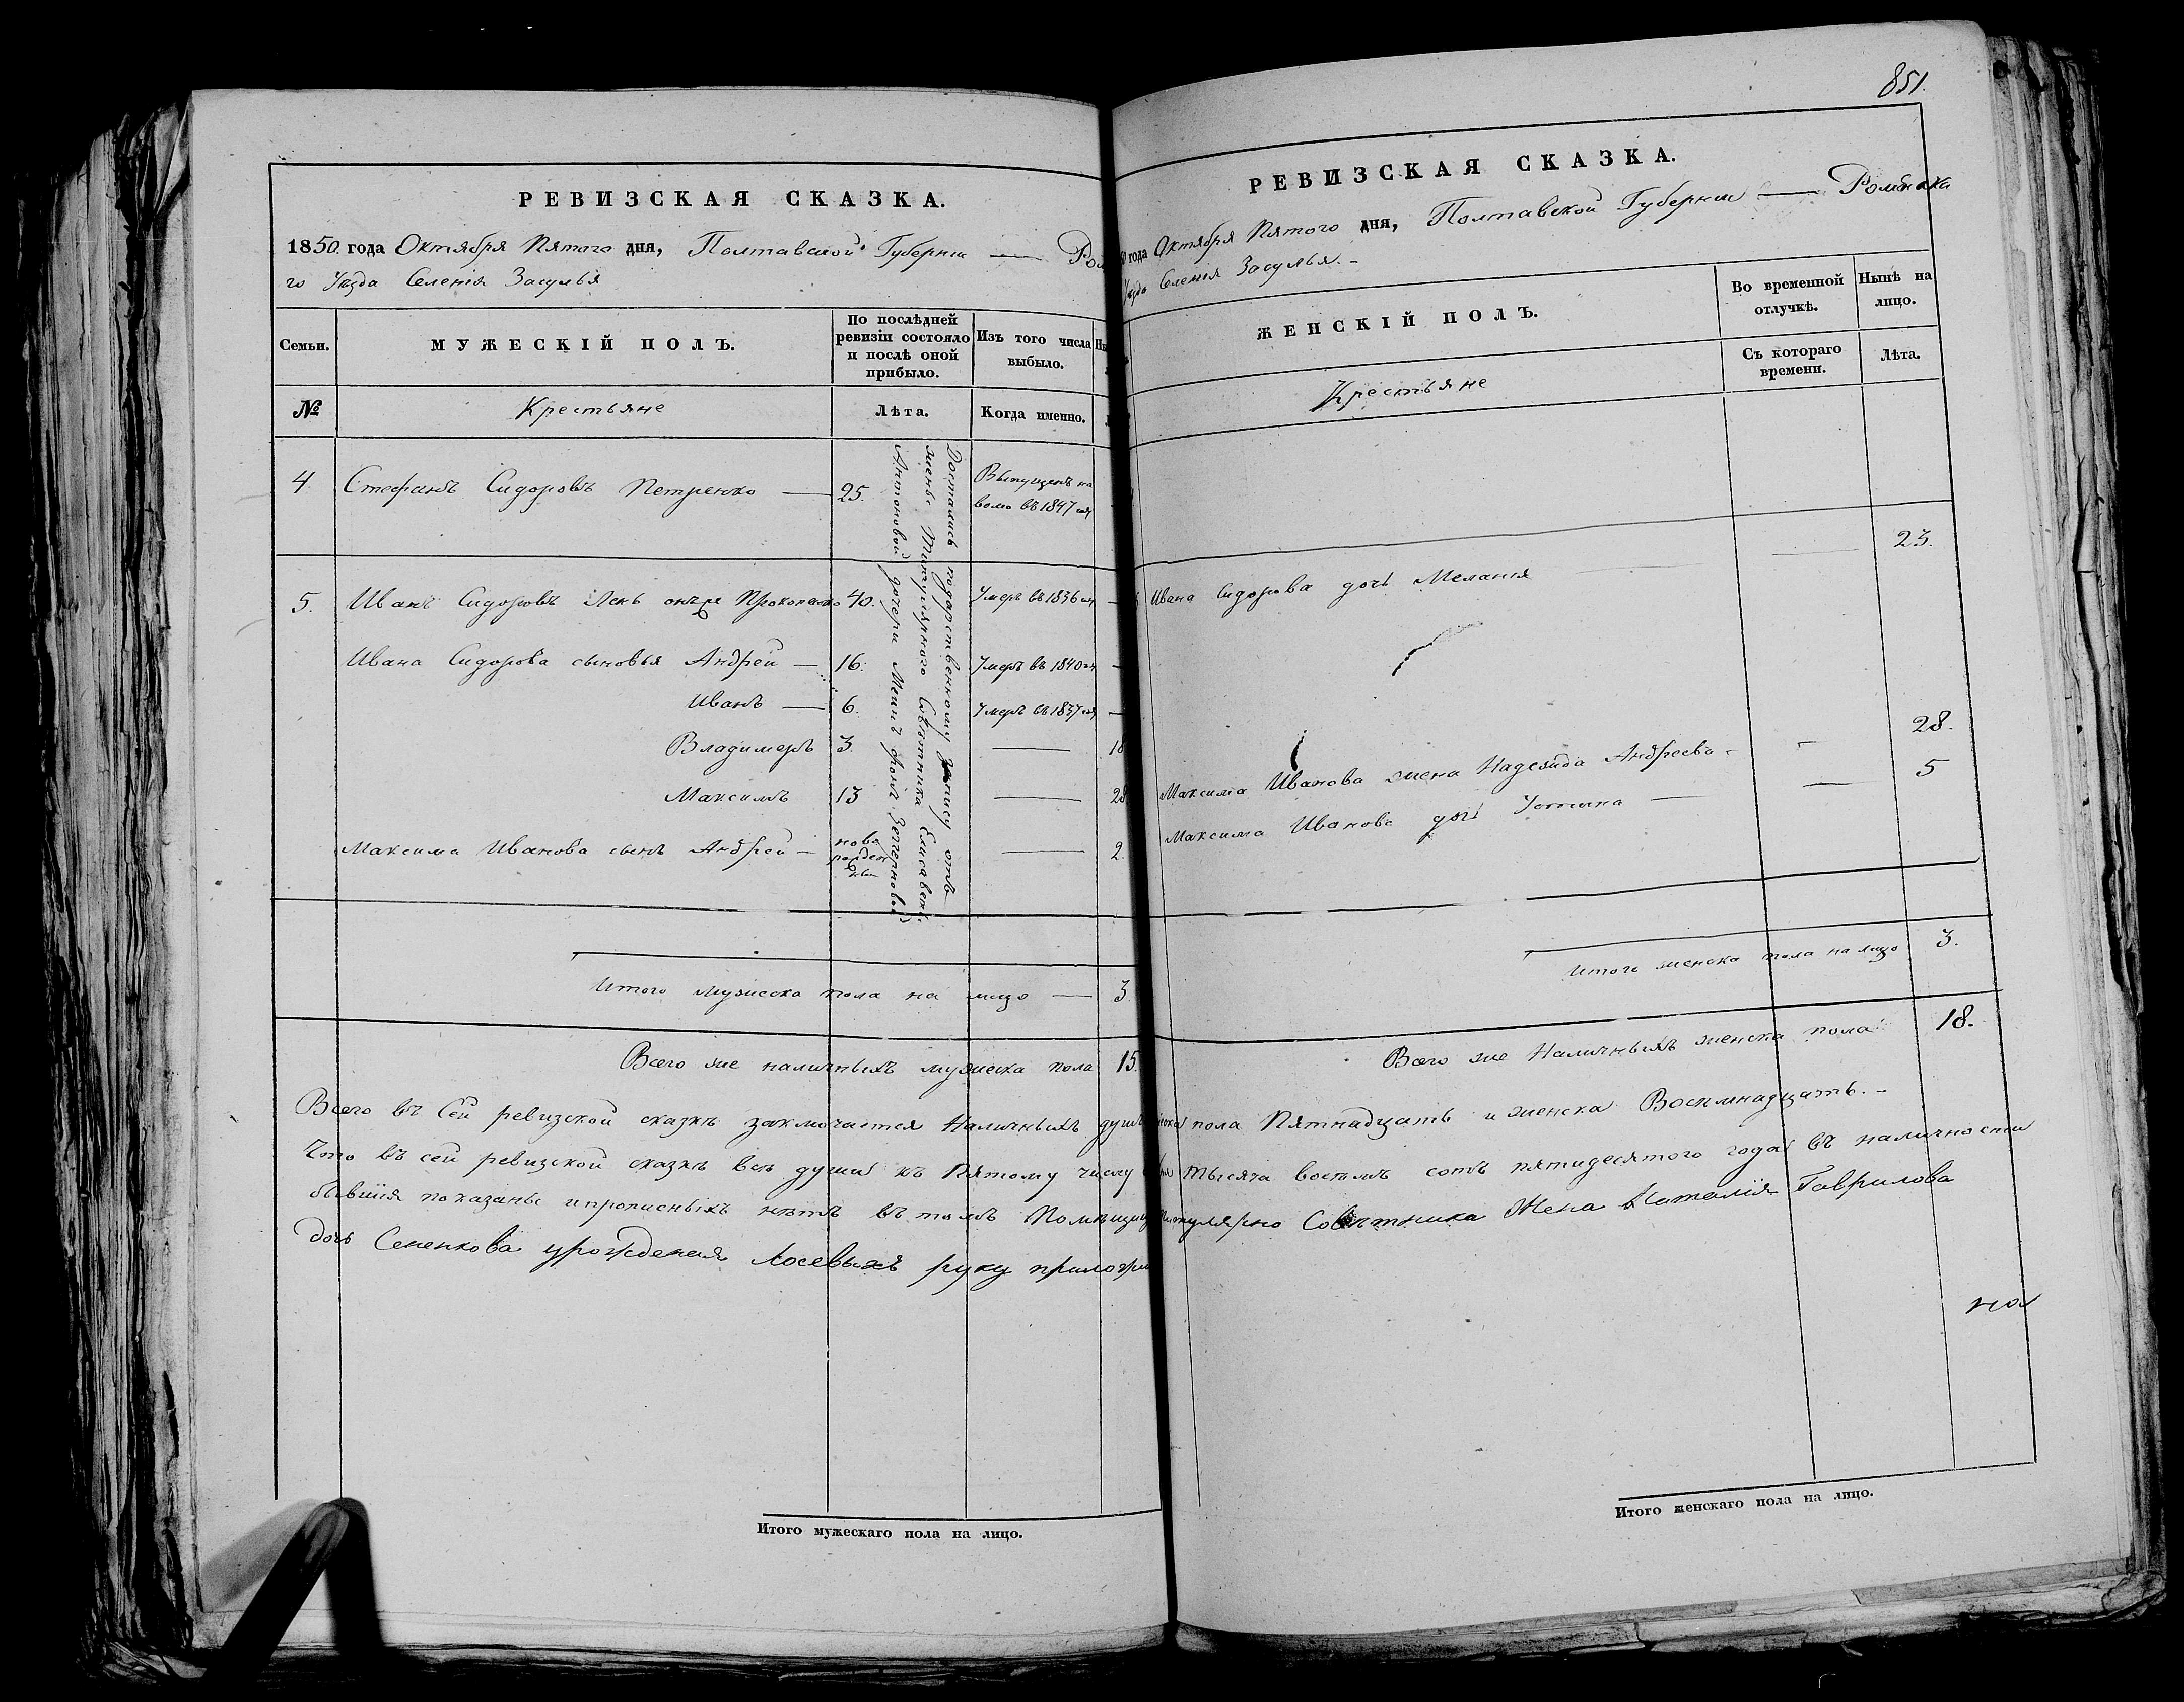 РЕВИЗСКАЯ СКАЗКА.
1850. года Октября Пятого дня, Полтавской Губернии —
го Уезда Селенія Засулья
Семьи.
МУЖЕСКІЙ ПОЛЪ.
По послѣдней
ревизіи состояло
и послѣ оной
прибыло.
Изъ того числа
выбыло.
№
Крестьяне
Лѣта.
Когда именно.
4. Стефанъ Сидоровъ Петренко — 25.
Выпущенъ на
волю въ 1847 год
5. Иванъ Сидоровъ онъ же Прокопенко 40. Умеръ въ 1836 год —
Ивана Сидорова сыновья Андрей — 16. Умеръ въ 1840 год —
Иванъ — 6. Умеръ въ 1837 год —
Владимеръ 3. — 18
Максимъ 13 — 28
Максима Иванова сынъ Андрей —
ново
рожден
— 2.
Достались подарственному запису отъ
жены Титулярного Совѣтника Елисаветы
Антоновой дочери
Итого мужеска пола на лицо — 3
Всего же наличныхъ мужеска пола 15.
Всего въ Сей ревизской сказкѣ заключается Наличныхъ душъ
Что въ сей ревизской сказкѣ всѣ души къ Пятому числу
бывшія показаны и прописныхъ нѣтъ въ томъ Помѣщица
дочь Сененкова урожденая Лосевыхъ руку приложи
Итого мужескаго пола на лицо.
851.
РЕВИЗСКАЯ СКАЗКА.
года Октября Пятого дня, Полтавской Губерніи — Роменска
Уезда Селенія Засулья. –
ЖЕНСКІЙ ПОЛЪ.
Во временной
отлучкѣ.
Нынѣ на
лицо.
Съ котораго
времени.
Лѣта.
Крестьяне
Ивана Сидорова дочь Меланія — 23.
Максима Иванова жена Надежида Андреева – — 28.
Максима Иванова дочь Устина — — 5
Итого женска пола на лицо 3.
Всего же Наличныхъ женска пола 18.
пола Пятнадцать и женска Восемнадцать. –
Тысяча восемъ сотъ пятидесятого года въ наличности
Титулярно Советника Жена Наталія Гаврилова
Итого женскаго пола на лицо.